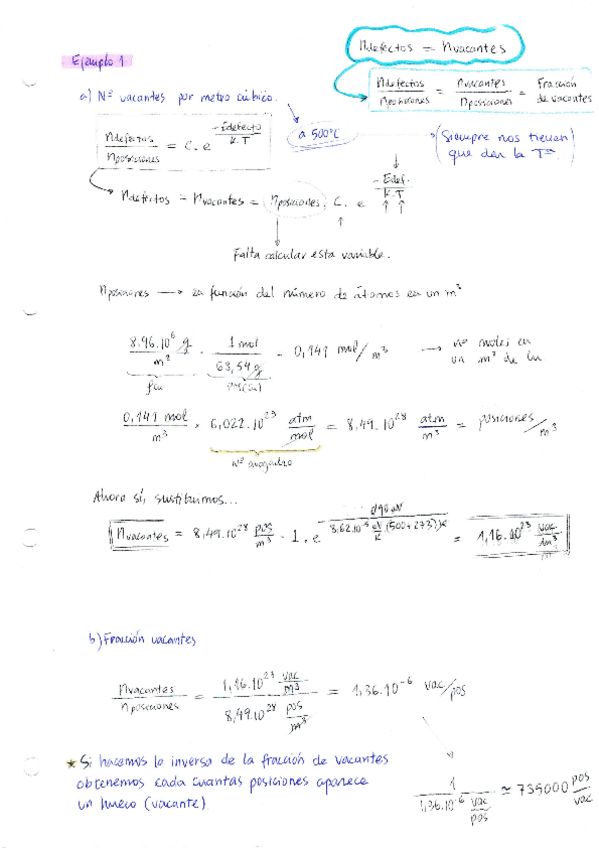 Ndefectos = Nvacantes
Ejemplo 1
Ndefectos / Nposiciones = Nvacantes / Nposiciones = Fracción de vacantes
a) Nº vacantes por metro cúbico.
a 500ºC
(Siempre nos tienen que dar la Tª)
Ndefectos / Nposiciones = C. e^(-Edefecto / K.T)
Ndefectos = Nvacantes = Nposiciones. C. e^(-Edef. / K.T)
Falta calcular esta variable.
Nposiciones → en función del número de átomos en un m³
8,96.10⁶ g / m³ . 1 mol / 63,54 g = 0,141 mol/m³ → nº moles en un m³ de Cu
ρCu PM(Cu)
0,141 mol / m³ × 6,022.10²³ atm / mol = 8,49.10²⁸ atm / m³ = posiciones / m³
nº avogadro
Ahora sí, sustituimos...
Nvacantes = 8,49.10²⁸ pos / m³ . 1. e^(0,90 eV / 8,62.10⁻⁵ eV/K (500+273)K) = 1,16.10²³ vac / m³
b) Fracción vacantes
Nvacantes / Nposiciones = 1,16.10²³ vac/m³ / 8,49.10²⁸ pos/m³ = 1,36.10⁻⁶ vac/pos
★ Si hacemos la inversa de la fracción de vacantes
obtenemos cada cuantas posiciones aparece
un hueco (vacante)
1 / 1,36.10⁻⁶ vac/pos ≃ 735000 pos/vac